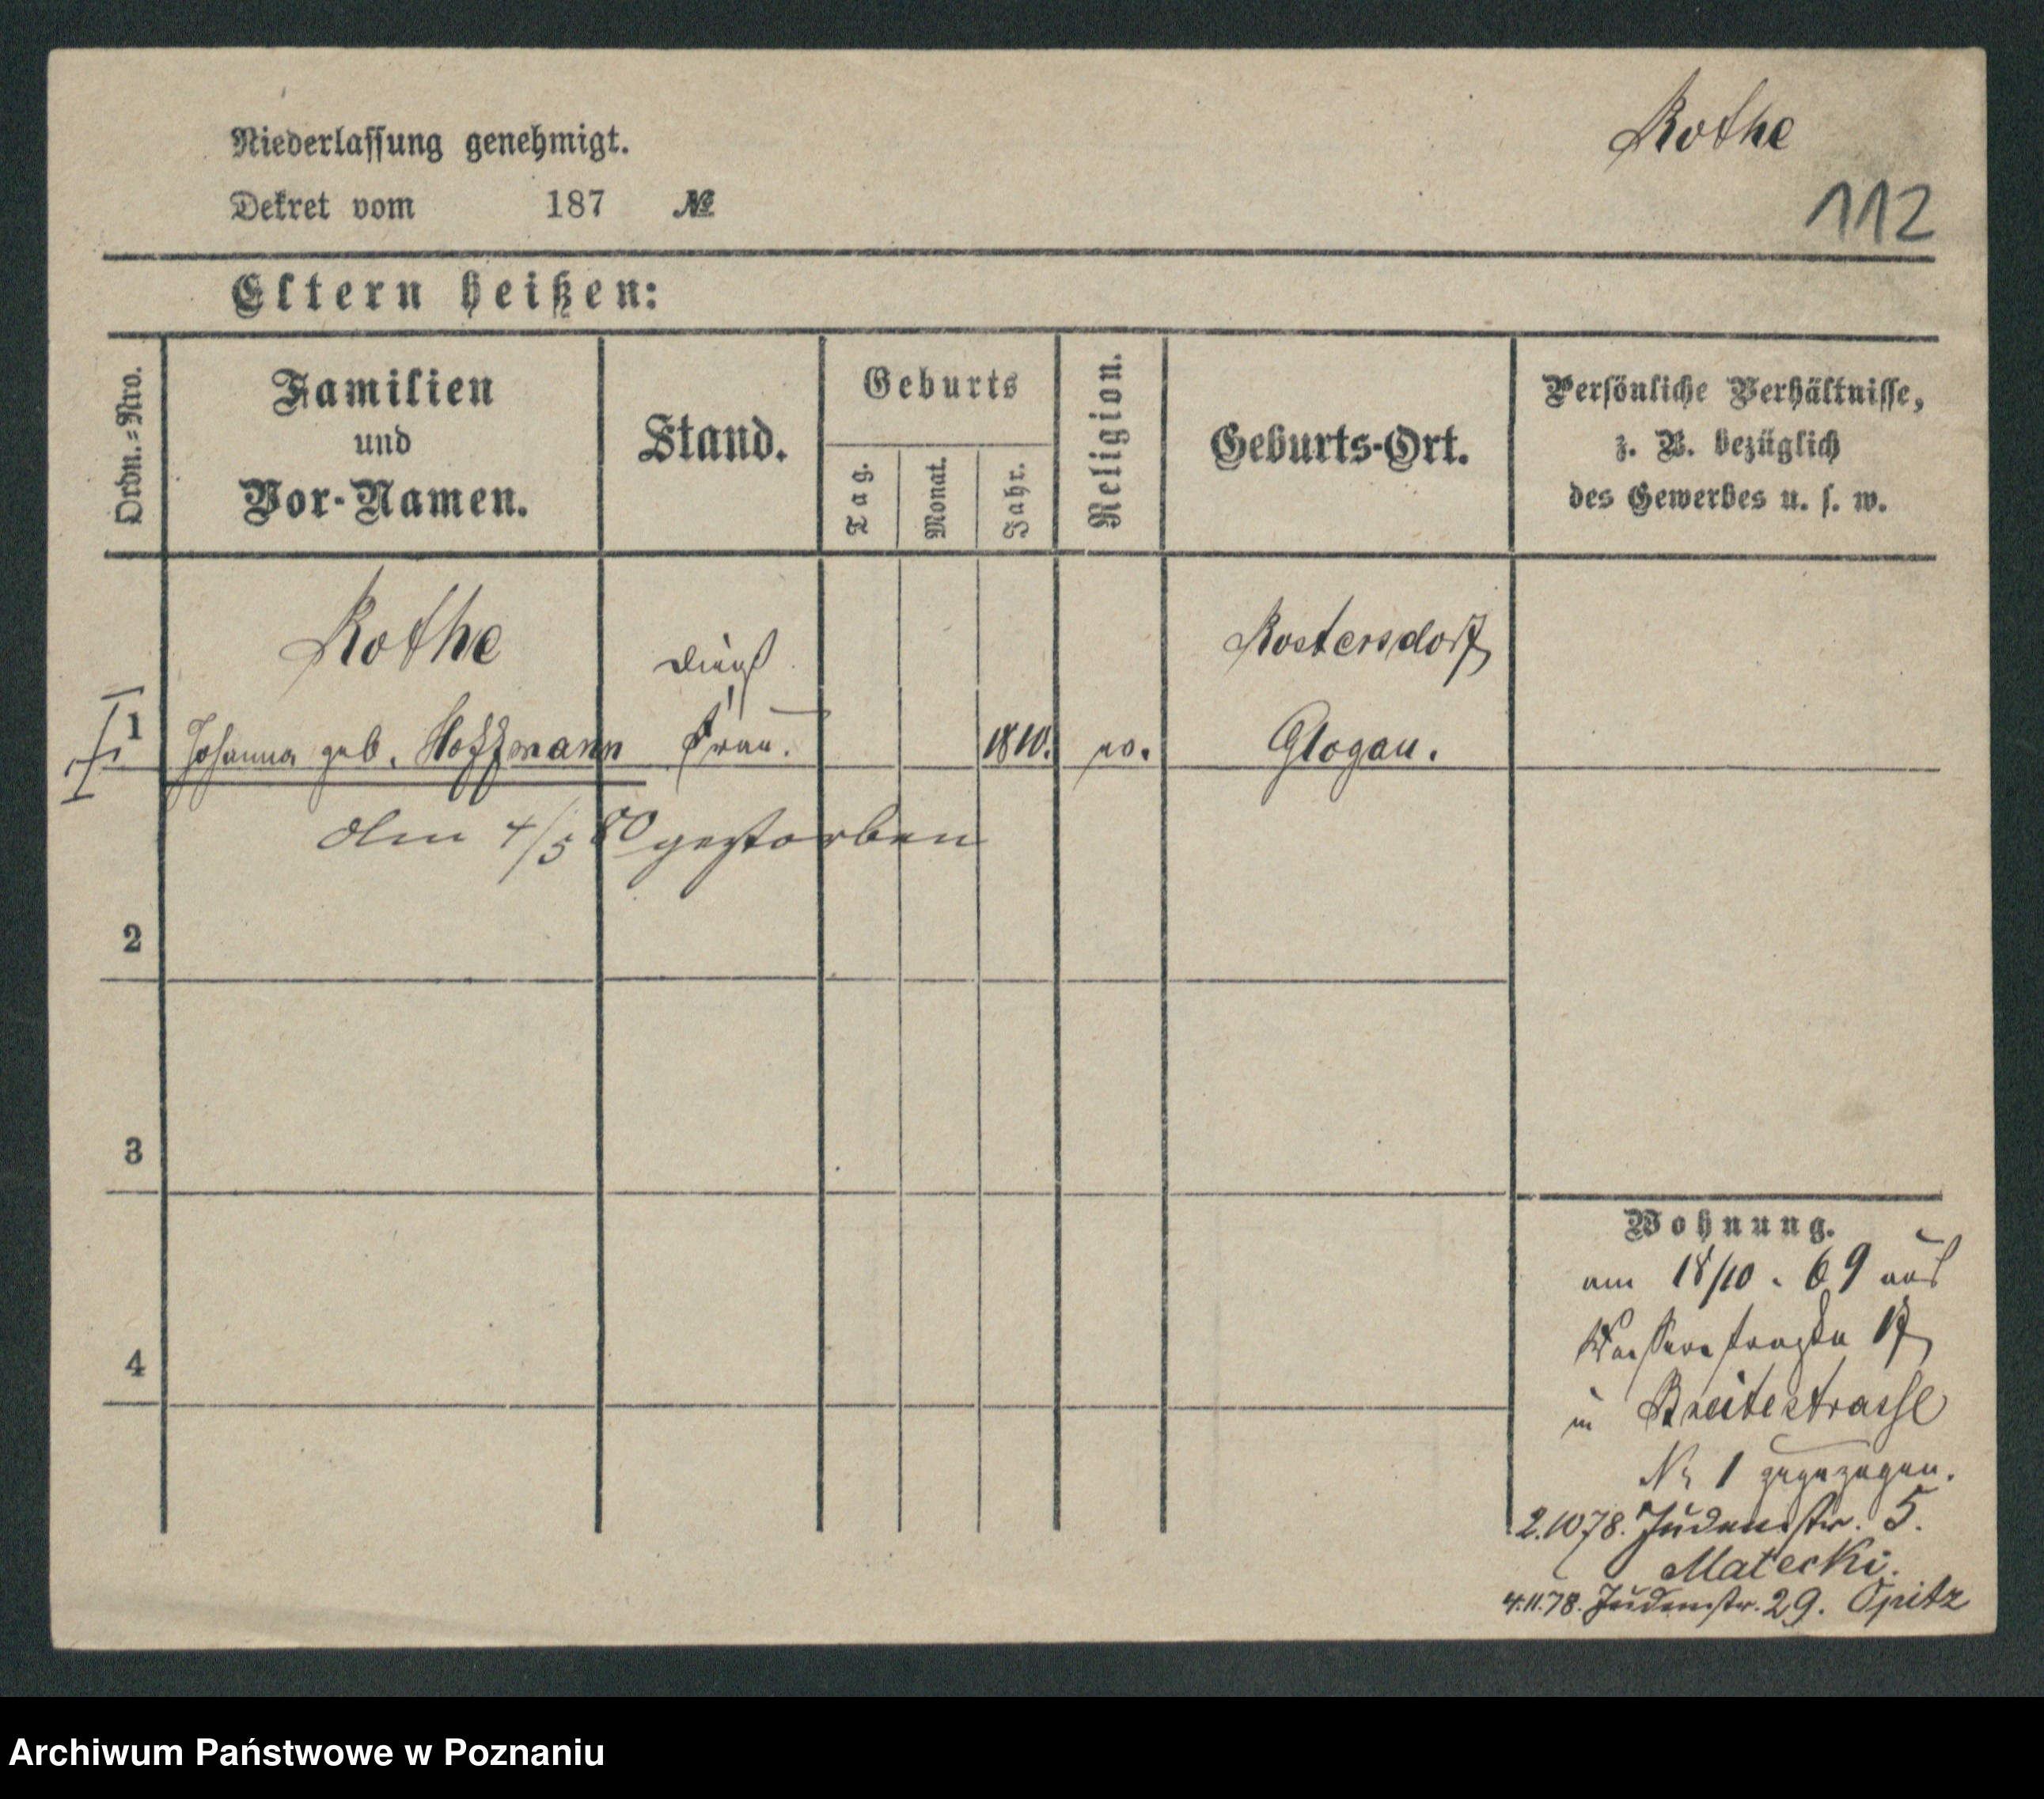 Rothe
112
Niederlassung genehmigt.
Dekret vom 187 №
Eltern heißen:
Ordn.=Nro.
Familien
und
Vor-Namen.
Stand.
Geburts
Tag.
Monat.
Jahr.
Religion.
Geburts-Ort.
Persönliche Verhältnisse,
z. B. bezüglich
des Gewerbes u. s. w.
Rothe
Kostersdorf
1 Johanna geb. Hoffmann Frau. 1810. ev. Glogau.
den 4/5 80 gestorben
2
3
4
Wohnung.
am 18/10. 69 aus
17
in Breitestrasse
No 1 gezogen.
2.10 78. Judenstr. 5.
Matecki.
4.11.78. Judenstr. 29. Opitz
Archiwum Państwowe w Poznaniu